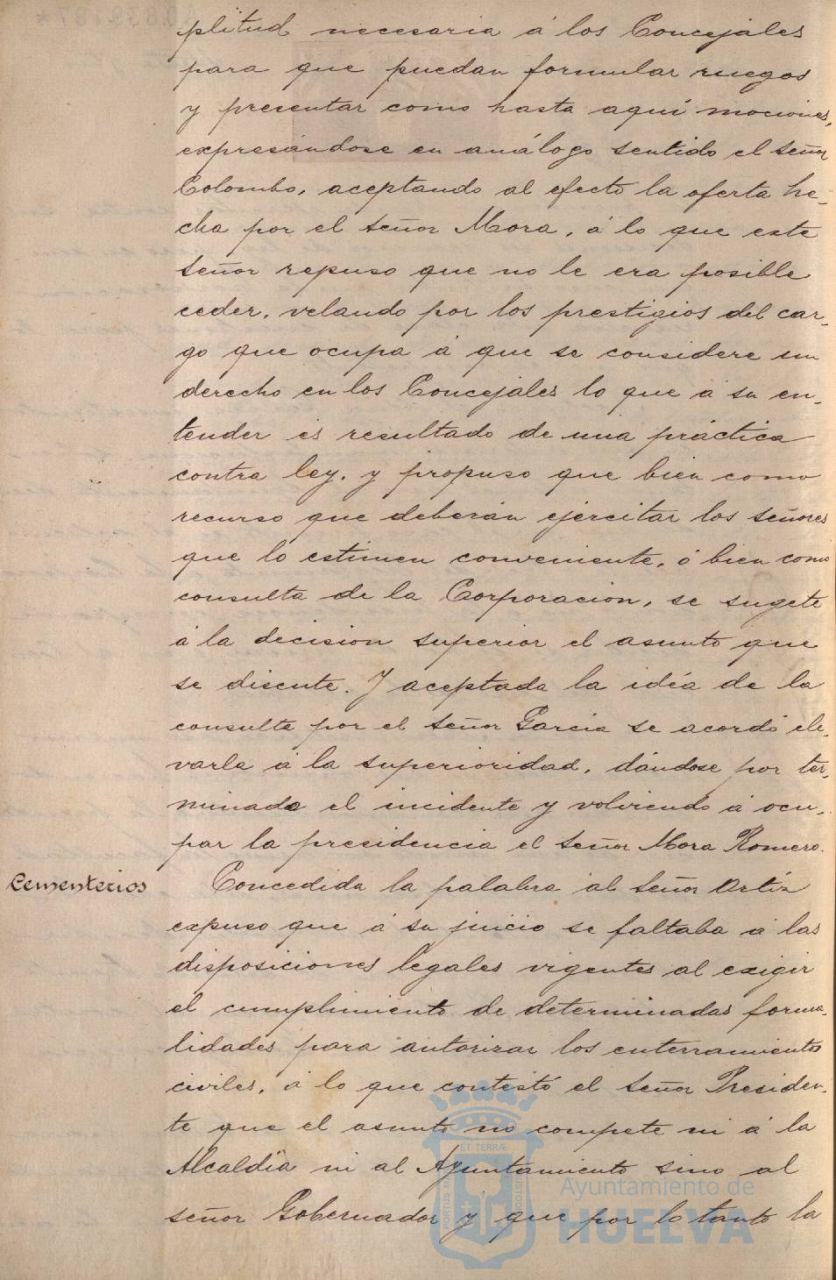 plitud necesaria á los Concejales
para que puedan formular ruegos
y presentar como hasta aquí mociones,
expresándose en análogo sentido el señor
Colombo, aceptando al efecto la oferta he-
cha por el señor Mora, á lo que este
señor repuso que no le era posible
ceder, velando por los prestigios del car-
go que ocupa á que se considere un
derecho en los Concejales lo que á su en-
tender es resultado de una práctica
contra ley, y propuso que bien como
recurso que deberán ejercitar los señores
que lo estimen conveniente, ó bien como
consulta de la Corporacion, se sugete
á la decision superior el asunto que
se discute. Y aceptada la idéa de la
consulta por el señor Garcia se acordó ele-
varla á la superioridad, dándose por ter-
minado el incidente y volviendo á ocu-
par la presidencia el señor Mora Romero.
Cementerios
Concedida la palabra al señor Ortiz
expuso que á su juicio se faltaba á las
disposiciones legales vigentes al exigir
el cumplimiento de determinadas forma-
lidades para autorizar los enterramientos
civiles, á lo que contestó el señor Presiden-
te que el asunto no compete ni á la
Alcaldía ni al Ayuntamiento sino al
señor Gobernador y que por lo tanto la
Ayuntamiento de
HUELVA